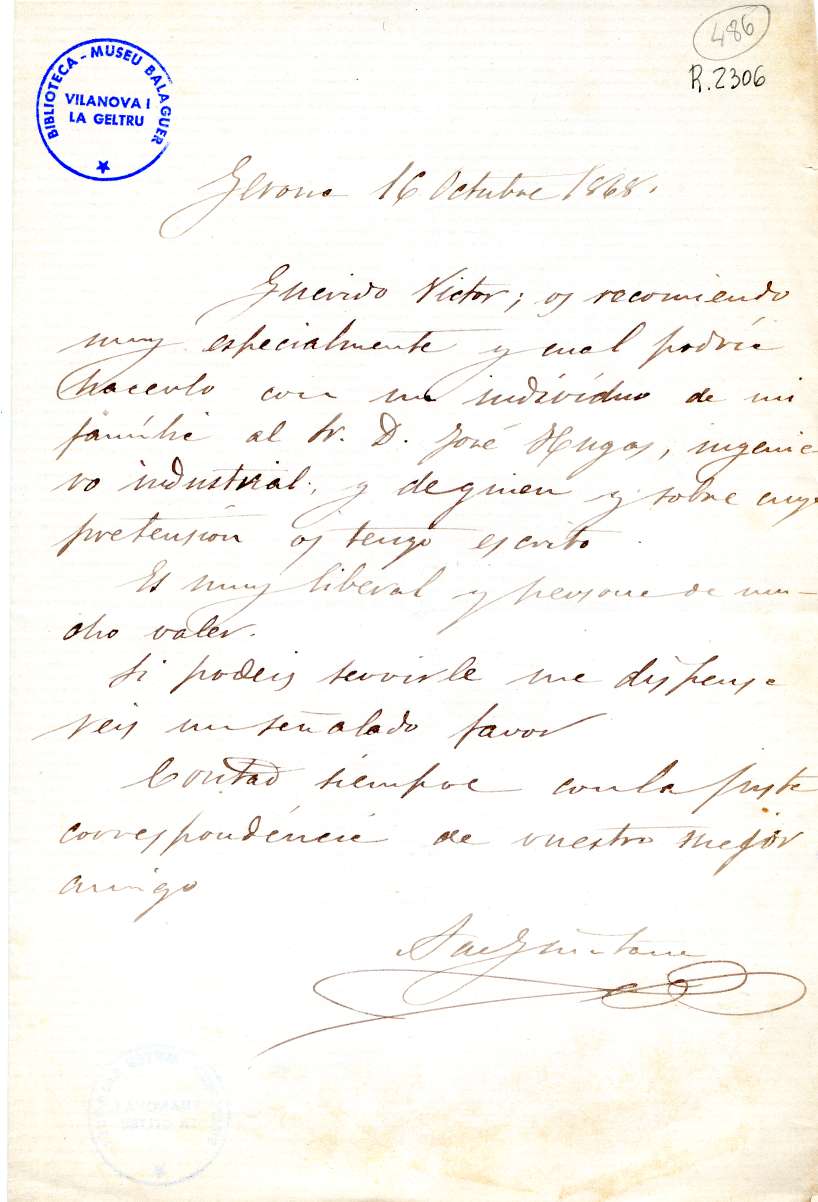 486
R.2306
BIBLIOTECA - MUSEU BALAGUER
VILANOVA I
LA GELTRU
Gerona 16 Octubre 1868.
Querido Victor; os recomiendo
muy especialmente y cual podria
hacerlo con un individuo de mi
familia al Sr. D. José Hugas, ingenie-
ro industrial, y de quien y sobre cuya
pretension os tengo escrito.
Es muy liberal y persona de mu-
cho valer.
Si podeis servirle me dispensa
reis un señalado favor
Contad siempre con la justa
correspondéncia de vuestro mejor
amigo